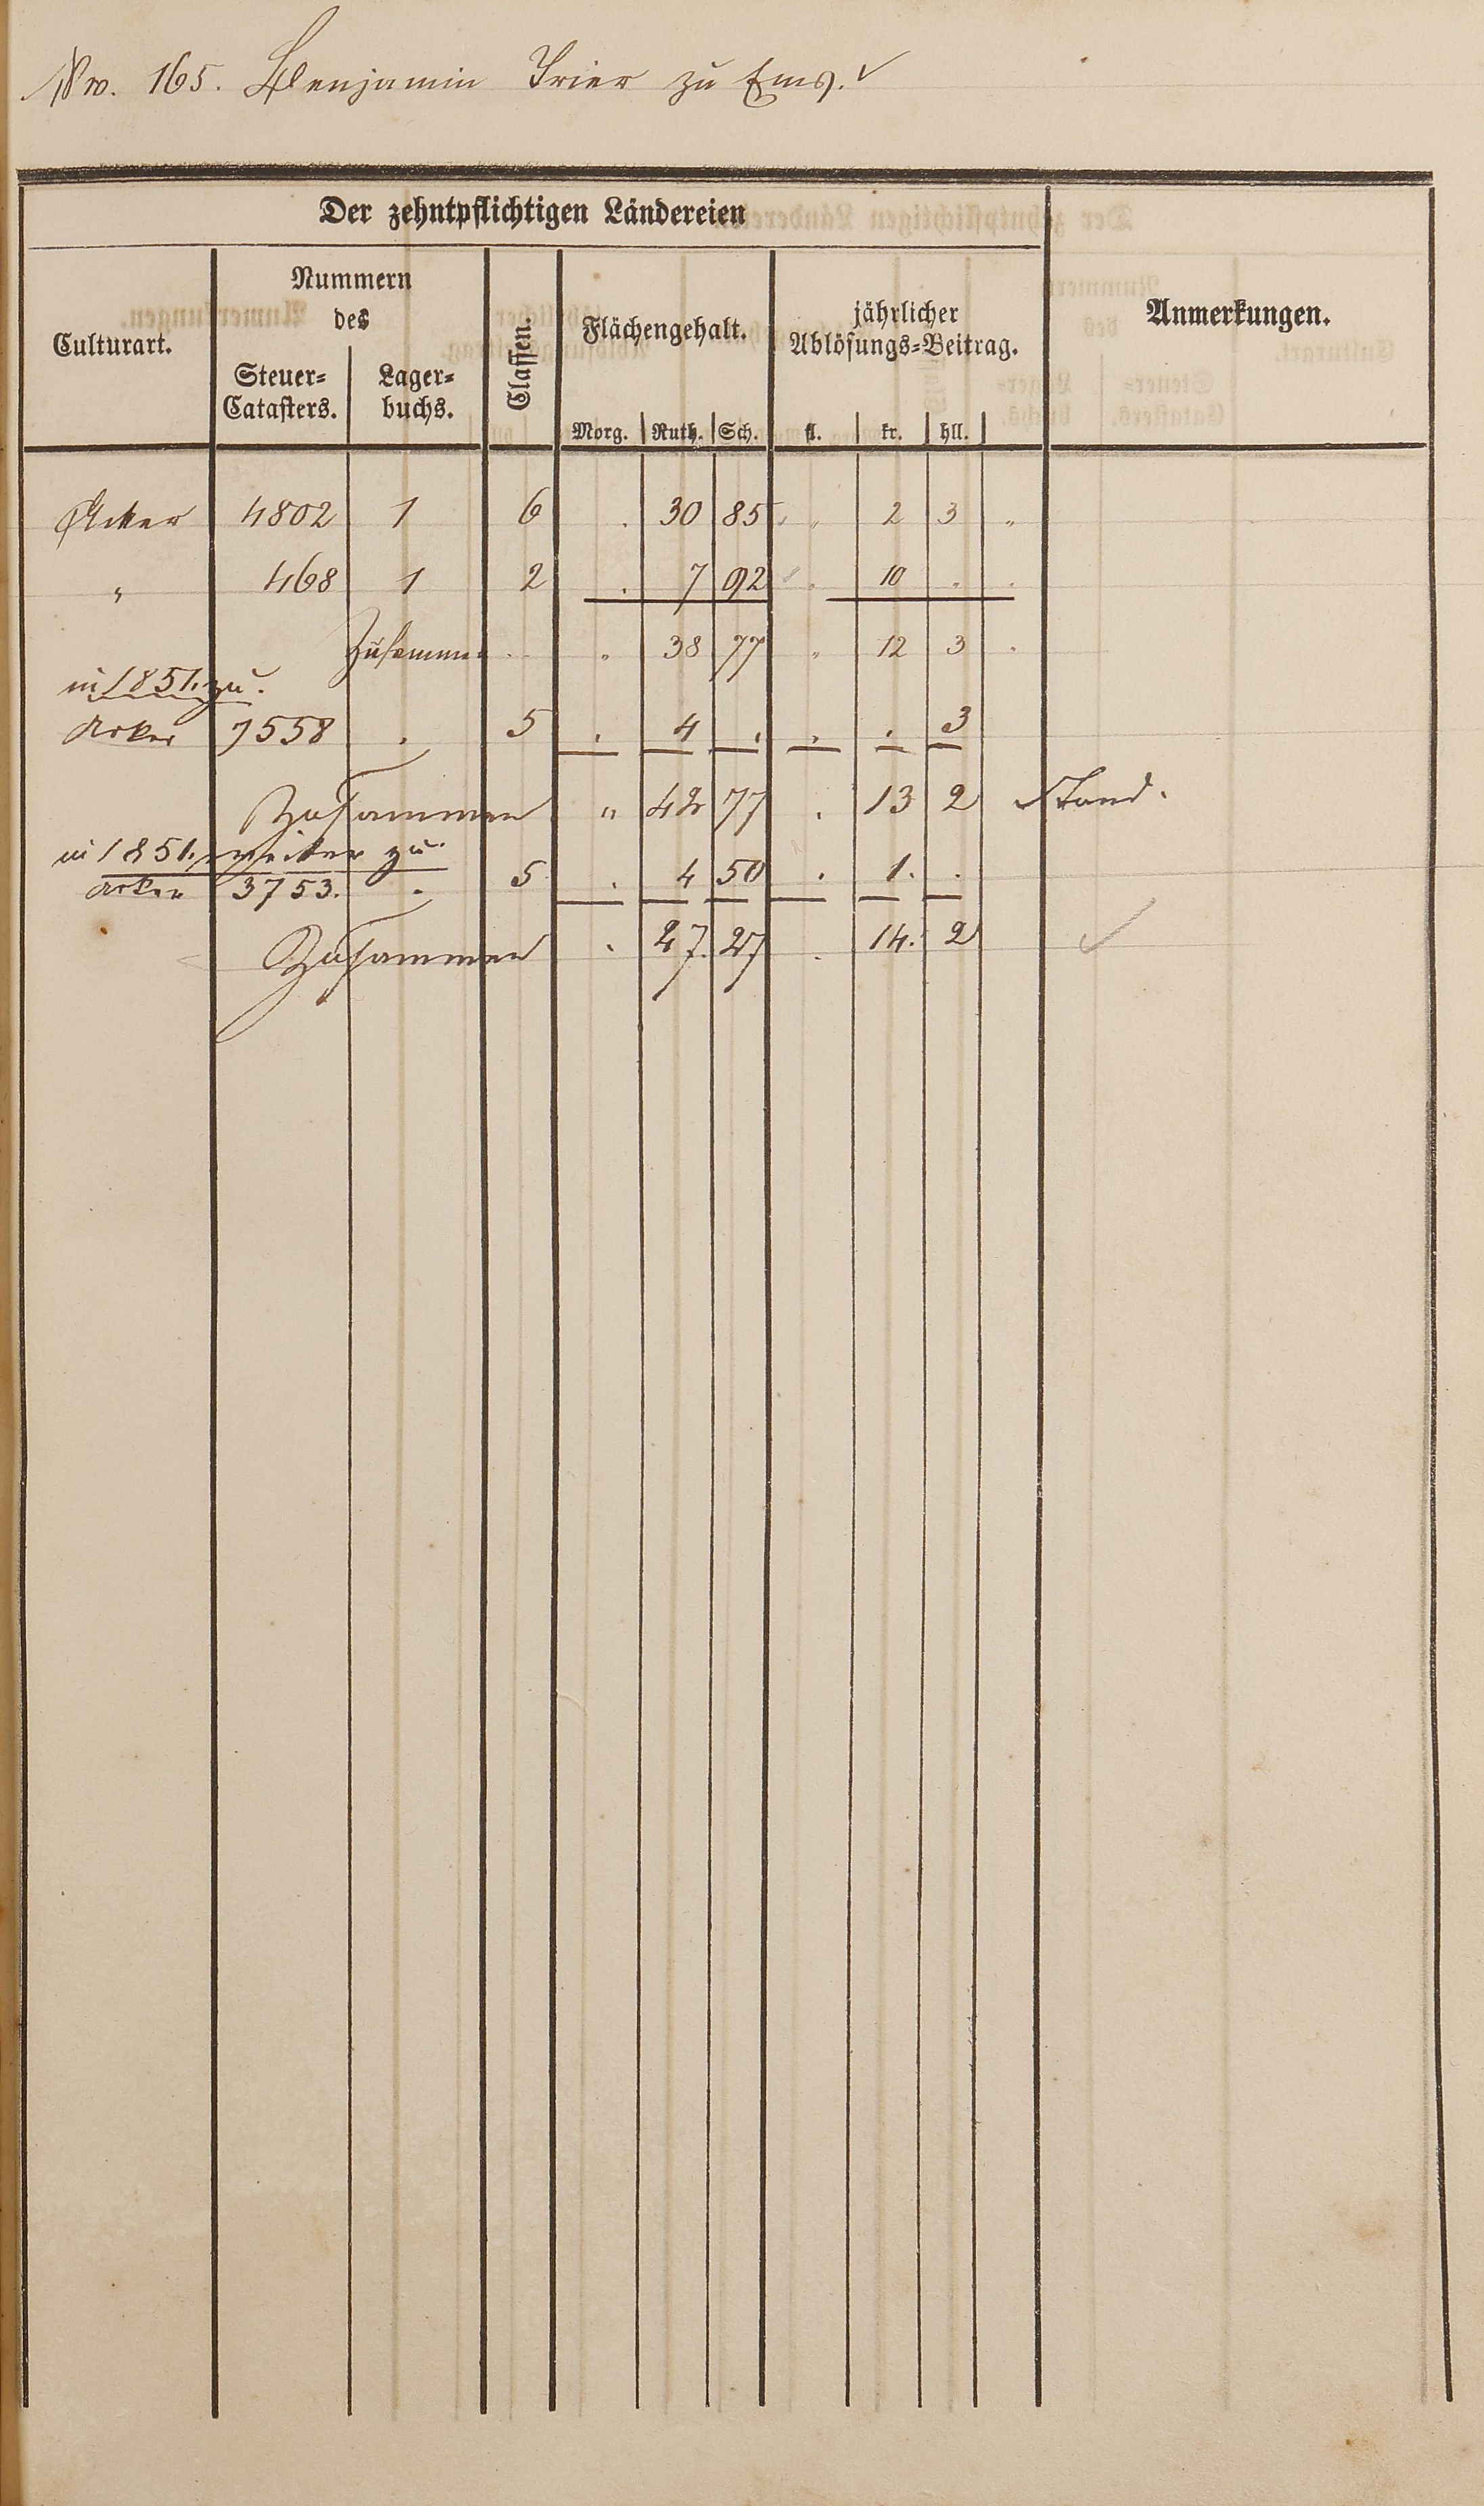 Nro. 165. Benjamin Trier zu Ems.
Der zehntpflichtigen Ländereien
Culturart. Nummern des Classen. Flächengehalt. jährlicher Ablösungs=Beitrag. Anmerkungen.
Steuer=Catasters. Lager=buchs.
Morg. Ruth. Sch. fl. kr. hll.
Acker 4802 1 6 . 30 85 " 2 3 "
" 468 1 2 . 7 92 . 10 . .
Zusammen " 38 77 " 12 3 .
in 1851. zu.
Acker 7558 . 5 . 4 . . . 3
Zusammen " 42 77 . 13 2 Stand.
in 1851. weiter zu.
Acker 3753. . 5 . 4 50 . 1. .
Zusammen . 47. 27 . 14. 2